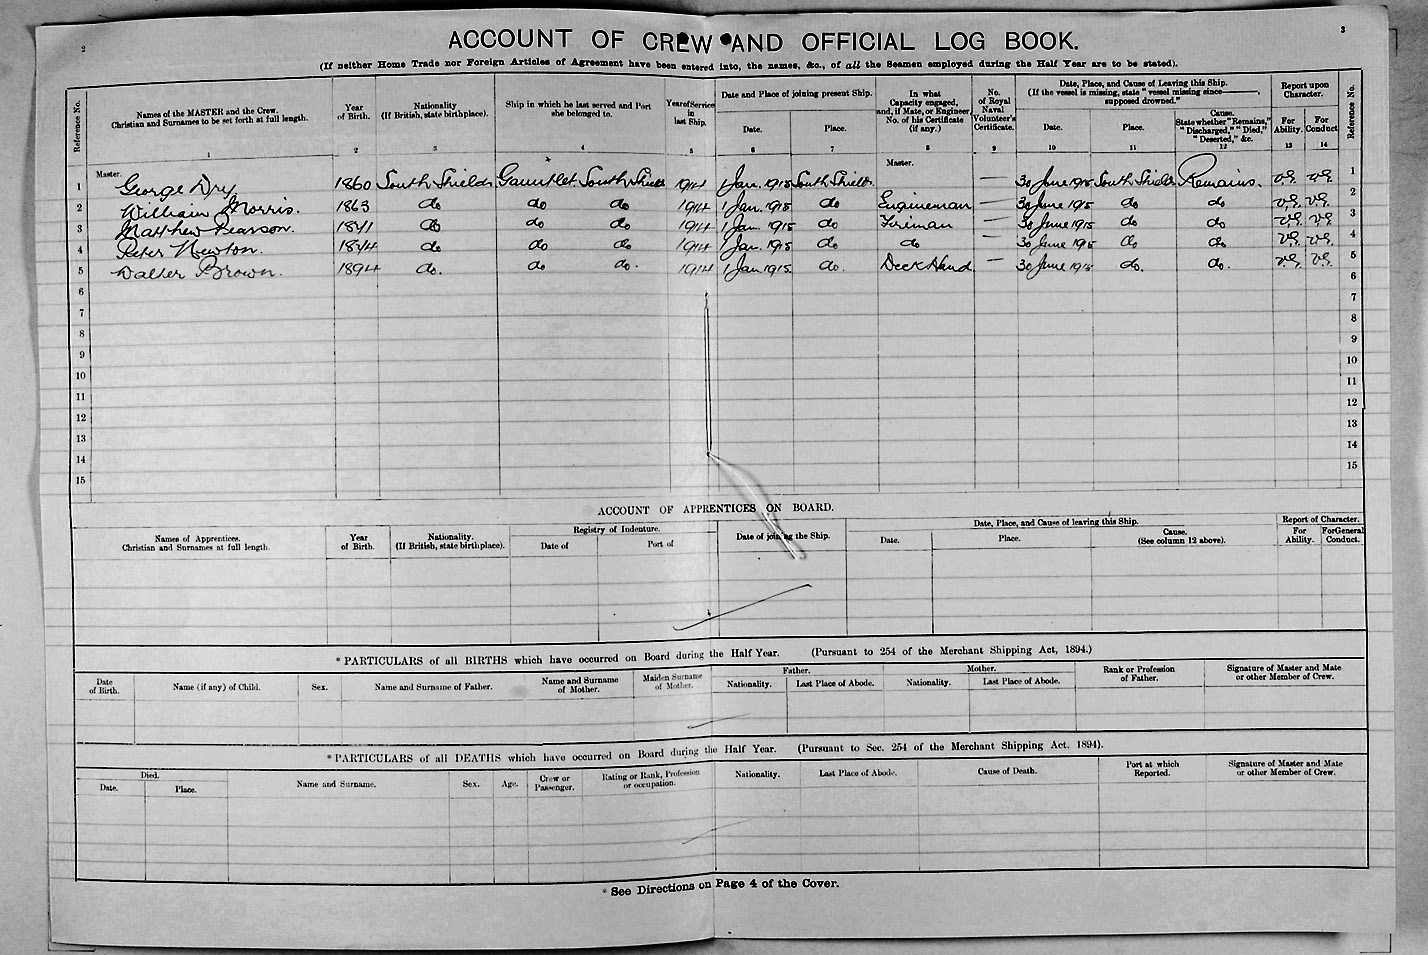 2
3
ACCOUNT OF CREW AND OFFICIAL LOG BOOK.
(If neither Home Trade nor Foreign Articles of Agreement have been entered into, the names, &c., of all the Seamen employed during the Half Year are to be stated).
Reference No. Names of the MASTER and the Crew. Christian and Surnames to be set forth at full length. Year of Birth. Nationality (If British, state birthplace). Ship in which he last served and Port she belonged to. Year of Service in last Ship. Date and Place of joining present Ship. In what Capacity engaged, and, if Mate, or Engineer, No. of his Certificate (if any.) No. of Royal Naval Volunteer's Certificate. Date, Place, and Cause of Leaving this Ship. (If the vessel is missing, state "vessel missing since ——, supposed drowned." Report upon Character. Reference No.
Date. Place. Date. Place. Cause. State whether "Remains," "Discharged," "Died," "Deserted," &c. For Ability. For Conduct
1 2 3 4 5 6 7 8 9 10 11 12 13 14
Master. Master.
1 George Dry 1860 South Shields Gauntlet South Shields 1914 1 Jan. 1915 South Shields — 30 June 1915 South Shields Remains. v.g. v.g. 1
2 William Morris. 1863 do do do 1914 1 Jan. 1915 do Engineman — 30 June 1915 do do v.g. v.g. 2
3 Matthew Pearson. 1841 do do do 1914 1 Jan. 1915 do Fireman — 30 June 1915 do do v.g. v.g. 3
4 Peter Newton. 1844 do do do 1914 1 Jan. 1915 do do — 30 June 1915 do do v.g. v.g. 4
5 Walter Brown. 1894 do. do do. 1914 1 Jan 1915. do. Deck Hand — 30 June 1915 do. do. v.g. v.g. 5
6 6
7 7
8 8
9 9
10 10
11 11
12 12
13 13
14 14
15 15
ACCOUNT OF APPRENTICES ON BOARD.
Names of Apprentices. Christian and Surnames at full length. Year of Birth. Nationality. (If British, state birthplace). Registry of Indenture. Date of joining the Ship. Date, Place, and Cause of leaving this Ship. Report of Character.
Date of Port of Date. Place. Cause. (See column 12 above). For Ability. For General Conduct.
* PARTICULARS of all BIRTHS which have occurred on Board during the Half Year. (Pursuant to 254 of the Merchant Shipping Act, 1894.)
Date of Birth. Name (if any) of Child. Sex. Name and Surname of Father. Name and Surname of Mother. Maiden Surname of Mother. Father. Mother. Rank or Profession of Father. Signature of Master and Mate or other Member of Crew.
Nationality. Last Place of Abode. Nationality. Last Place of Abode.
* PARTICULARS of all DEATHS which have occurred on Board during the Half Year. (Pursuant to Sec. 254 of the Merchant Shipping Act. 1894).
Died. Name and Surname. Sex. Age. Crew or Passenger. Rating or Rank, Profession or occupation. Nationality. Last Place of Abode. Cause of Death. Port at which Reported. Signature of Master and Mate or other Member of Crew.
Date. Place.
* See Directions on Page 4 of the Cover.